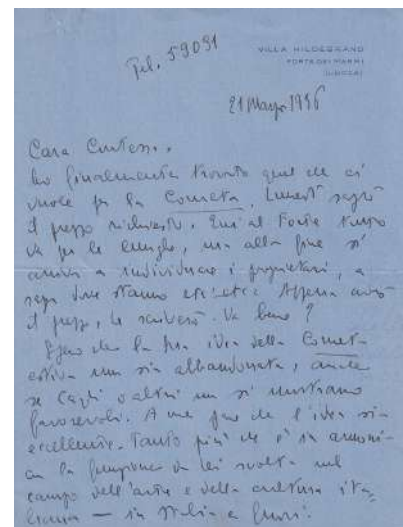 Tel. 59091
VILLA HILDEBRAND
FORTE DEI MARMI
(LUCCA)
21 Maggio 1956
Cara Contessa,
ho finalmente trovato quel che ci
vuole per la Cometa. Lunedì saprò
il prezzo richiesto. Qui al Forte tutto
va per le lunghe, ma alla fine si
arriva a individuare i proprietari, a
sapere dove stanno etc. etc. Appena avrò
il prezzo, le scriverò. Va bene?
Spero che la sua idea della Cometa
estiva non sia abbandonata, anche
se Cagli o altri non si mostrano
favorevoli. A me pare che l'idea sia
eccellente. Tanto più che è in armonia
con la funzione da lei svolta nel
campo dell'arte e della cultura ita-
liana — in Italia e fuori.